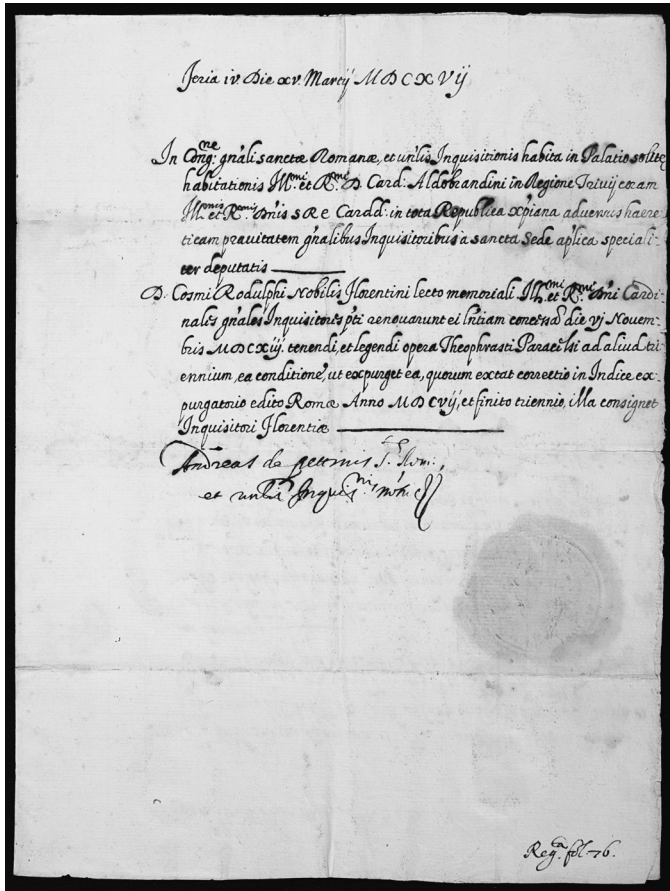 Feria iv Die xv Martij MDCXVij
In Cong.ne gnãli sanctæ Romanæ, et unlis Inquisitionis habita in Palatio solitæ
habitationis Ill.mi et R.mi D. Card: Aldobrandini in Regione Trivij coram
Ill.mis et R.mis Dnis S R E Cardd: in tota Republica xp̃iana adversus haere
ticam pravitatem gnãlibus Inquisitoribus à sancta Sede ap̃lica speciali-
ter deputatis
D. Cosmi Rodulphi Nobilis Florentini lecto memoriali Ill.mi et R.mi Dñi Cardi-
nales gnãles Inquisitores p̃ti renovarunt ei lñtiam concessã die vj Novem-
bris MDCXiij. tenendi, et legendi opera Theophrasti Paracelsi ad aliud tri-
ennium, ea conditione, ut expurget ea, quorum extat correctio in Indice ex-
purgatorio edito Romæ Anno MDCVij, et finito triennio, illa consignet
Inquisitori Florentiæ
Andreas de Pettinis S. Rom:
et unlis Inquis.nis not.
Reg.ta fol. 76.